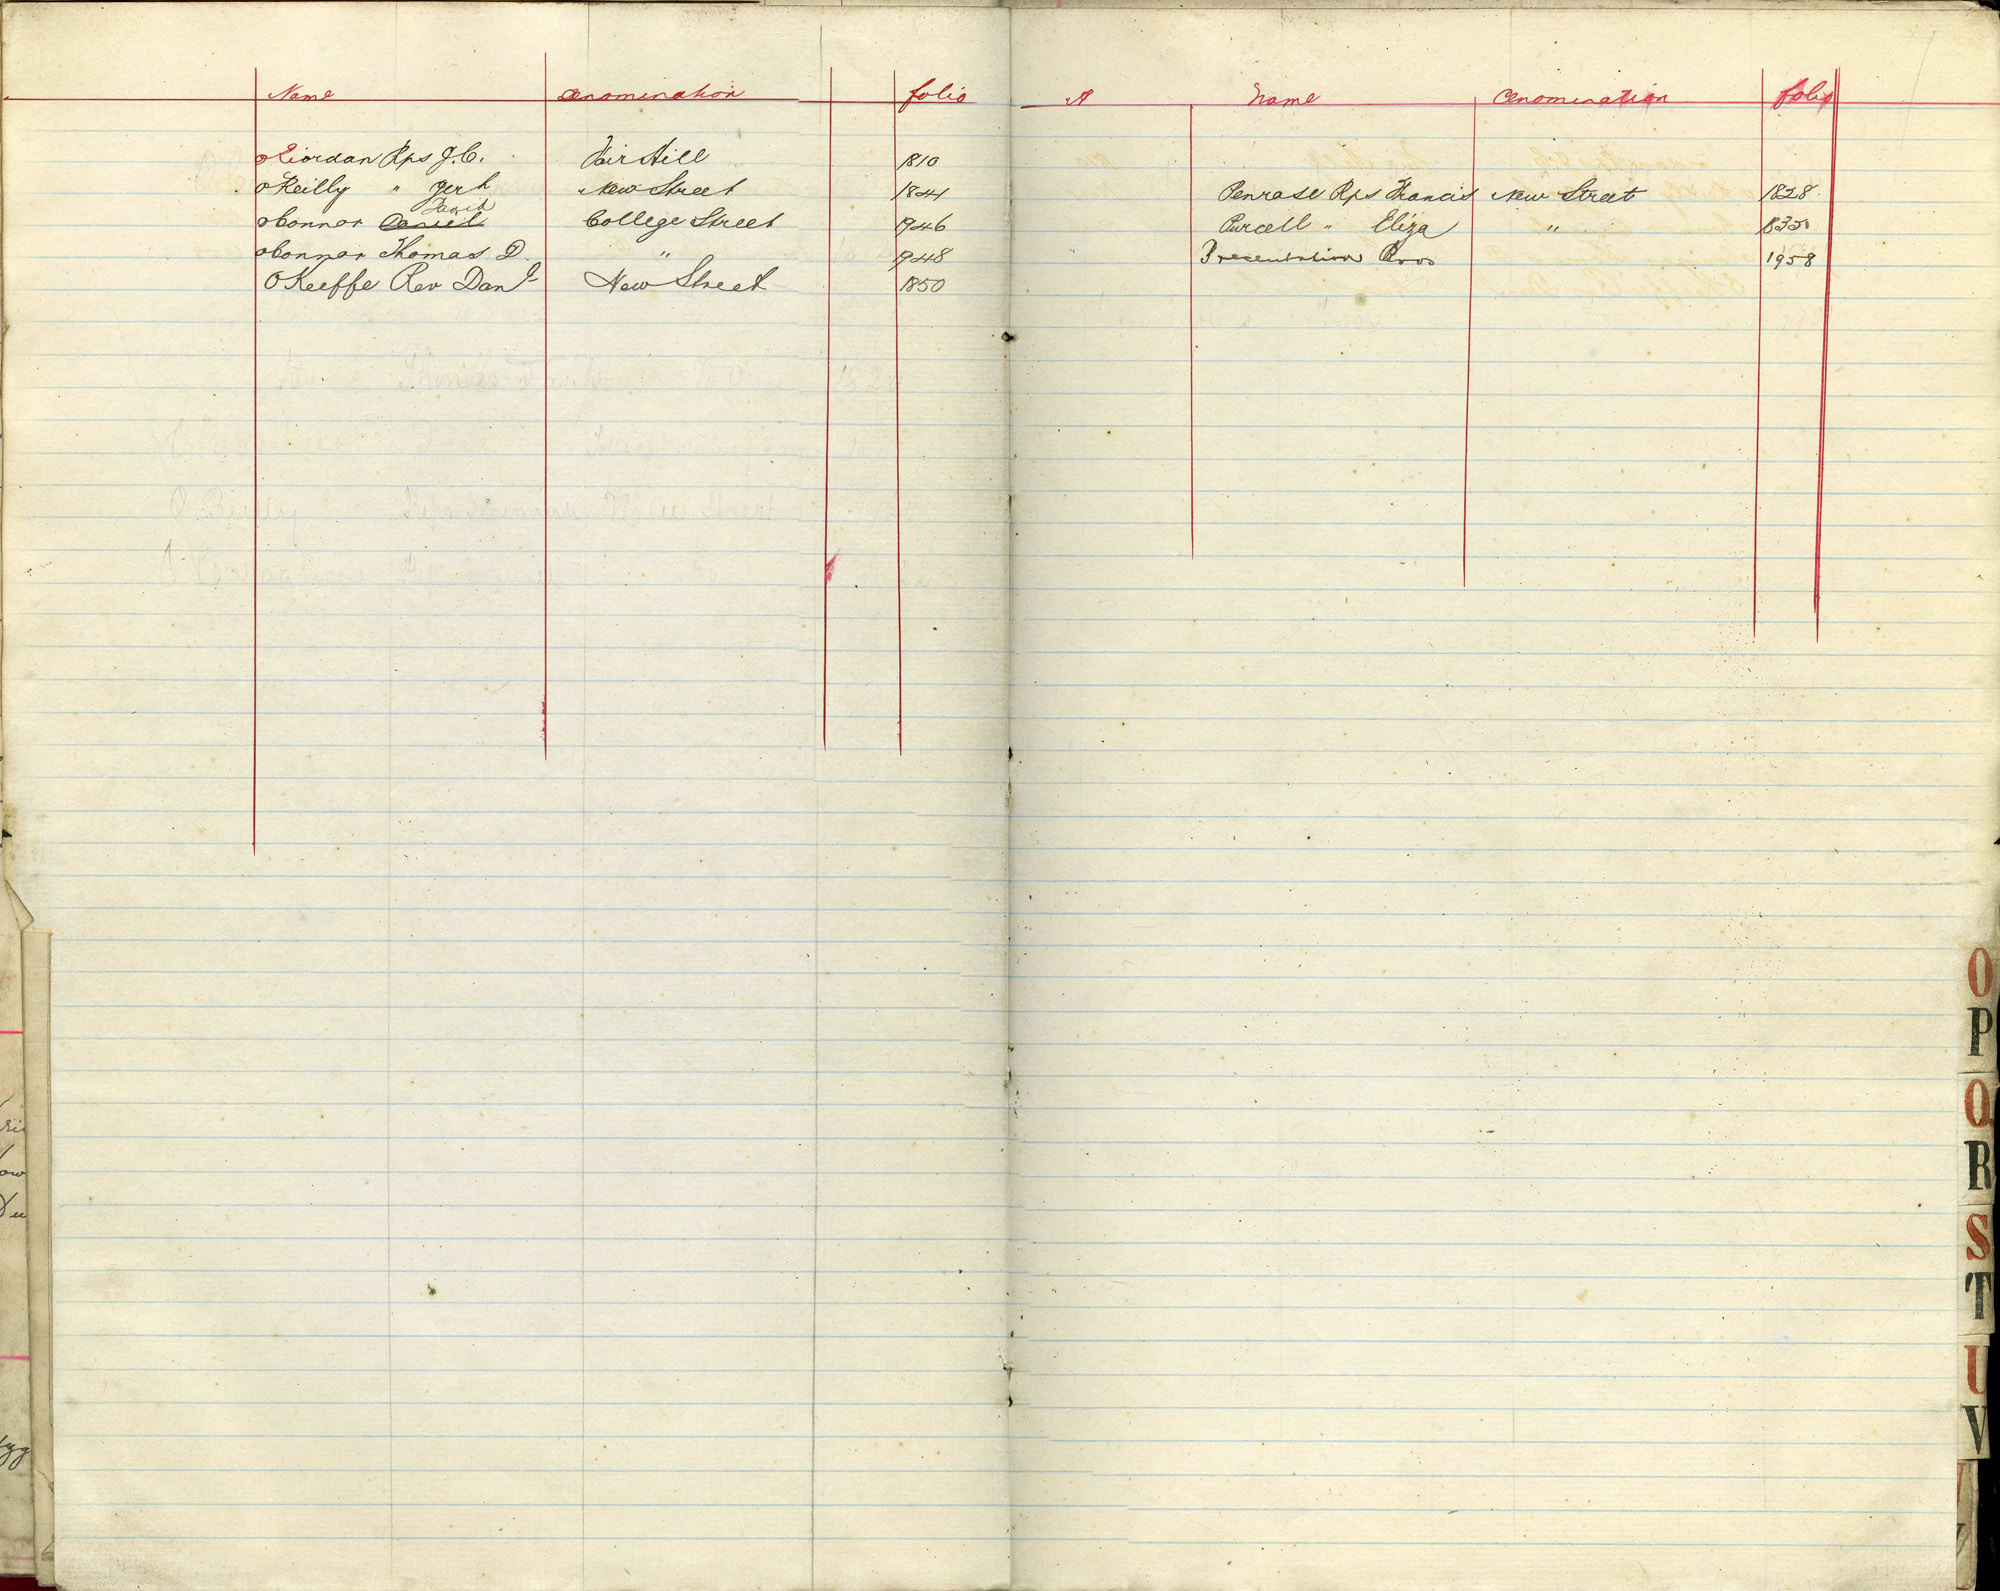 Name Denomination folio
oRiordan Rps J.C. Fair Hill 1810
oReilly " Jerh New Street 1844
David
oConnor Daniel College Street 1946
oConnor Thomas D. " 1948
OKeeffe Rev Danl New Street 1850
N Name Denomination folio
Penrose Rps Francis New Street 1828
Purcell " Eliza "
Presentation 1958
O
P
Q
R
S
T
U
V